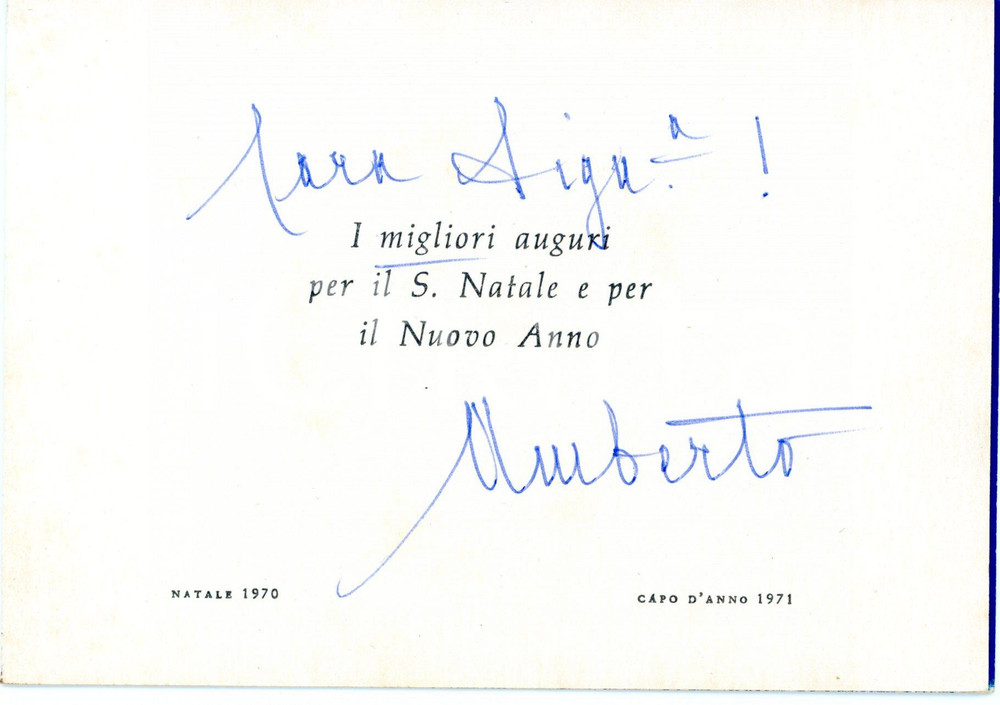 Cara Sign.ª !
I migliori auguri
per il S. Natale e per
il Nuovo Anno
Umberto
NATALE 1970
CAPO D'ANNO 1971